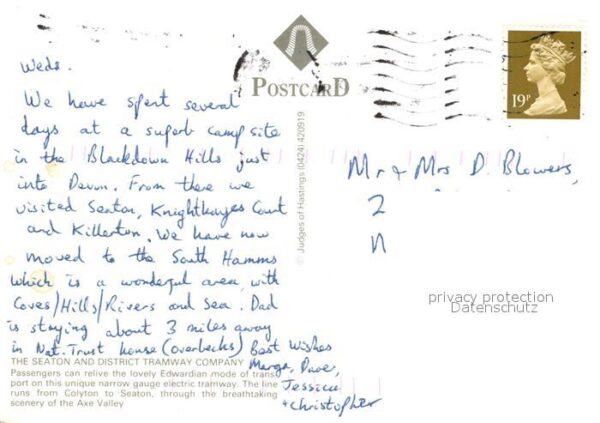 Weds.
We have spent several
days at a superb camp site
in the Blackdown Hills just
into Devon. From there we
visited Seaton, Knightshayes Court
and Killerton. We have now
moved to the South Hamms
which is a wonderful area, with
Coves/Hills/Rivers and Sea. Dad
is staying about 3 miles away
in Nat. Trust house (overbecks) Best Wishes
Marga, Dave,
Jessica
+ Christopher
THE SEATON AND DISTRICT TRAMWAY COMPANY
Passengers can relive the lovely Edwardian mode of trans
port on this unique narrow gauge electric tramway. The line
runs from Colyton to Seaton, through the breathtaking
scenery of the Axe Valley
POSTCARD
© Judges of Hastings (0424) 420919
19P
Mr & Mrs D. Blowers,
2
n
privacy protection
Datenschutz